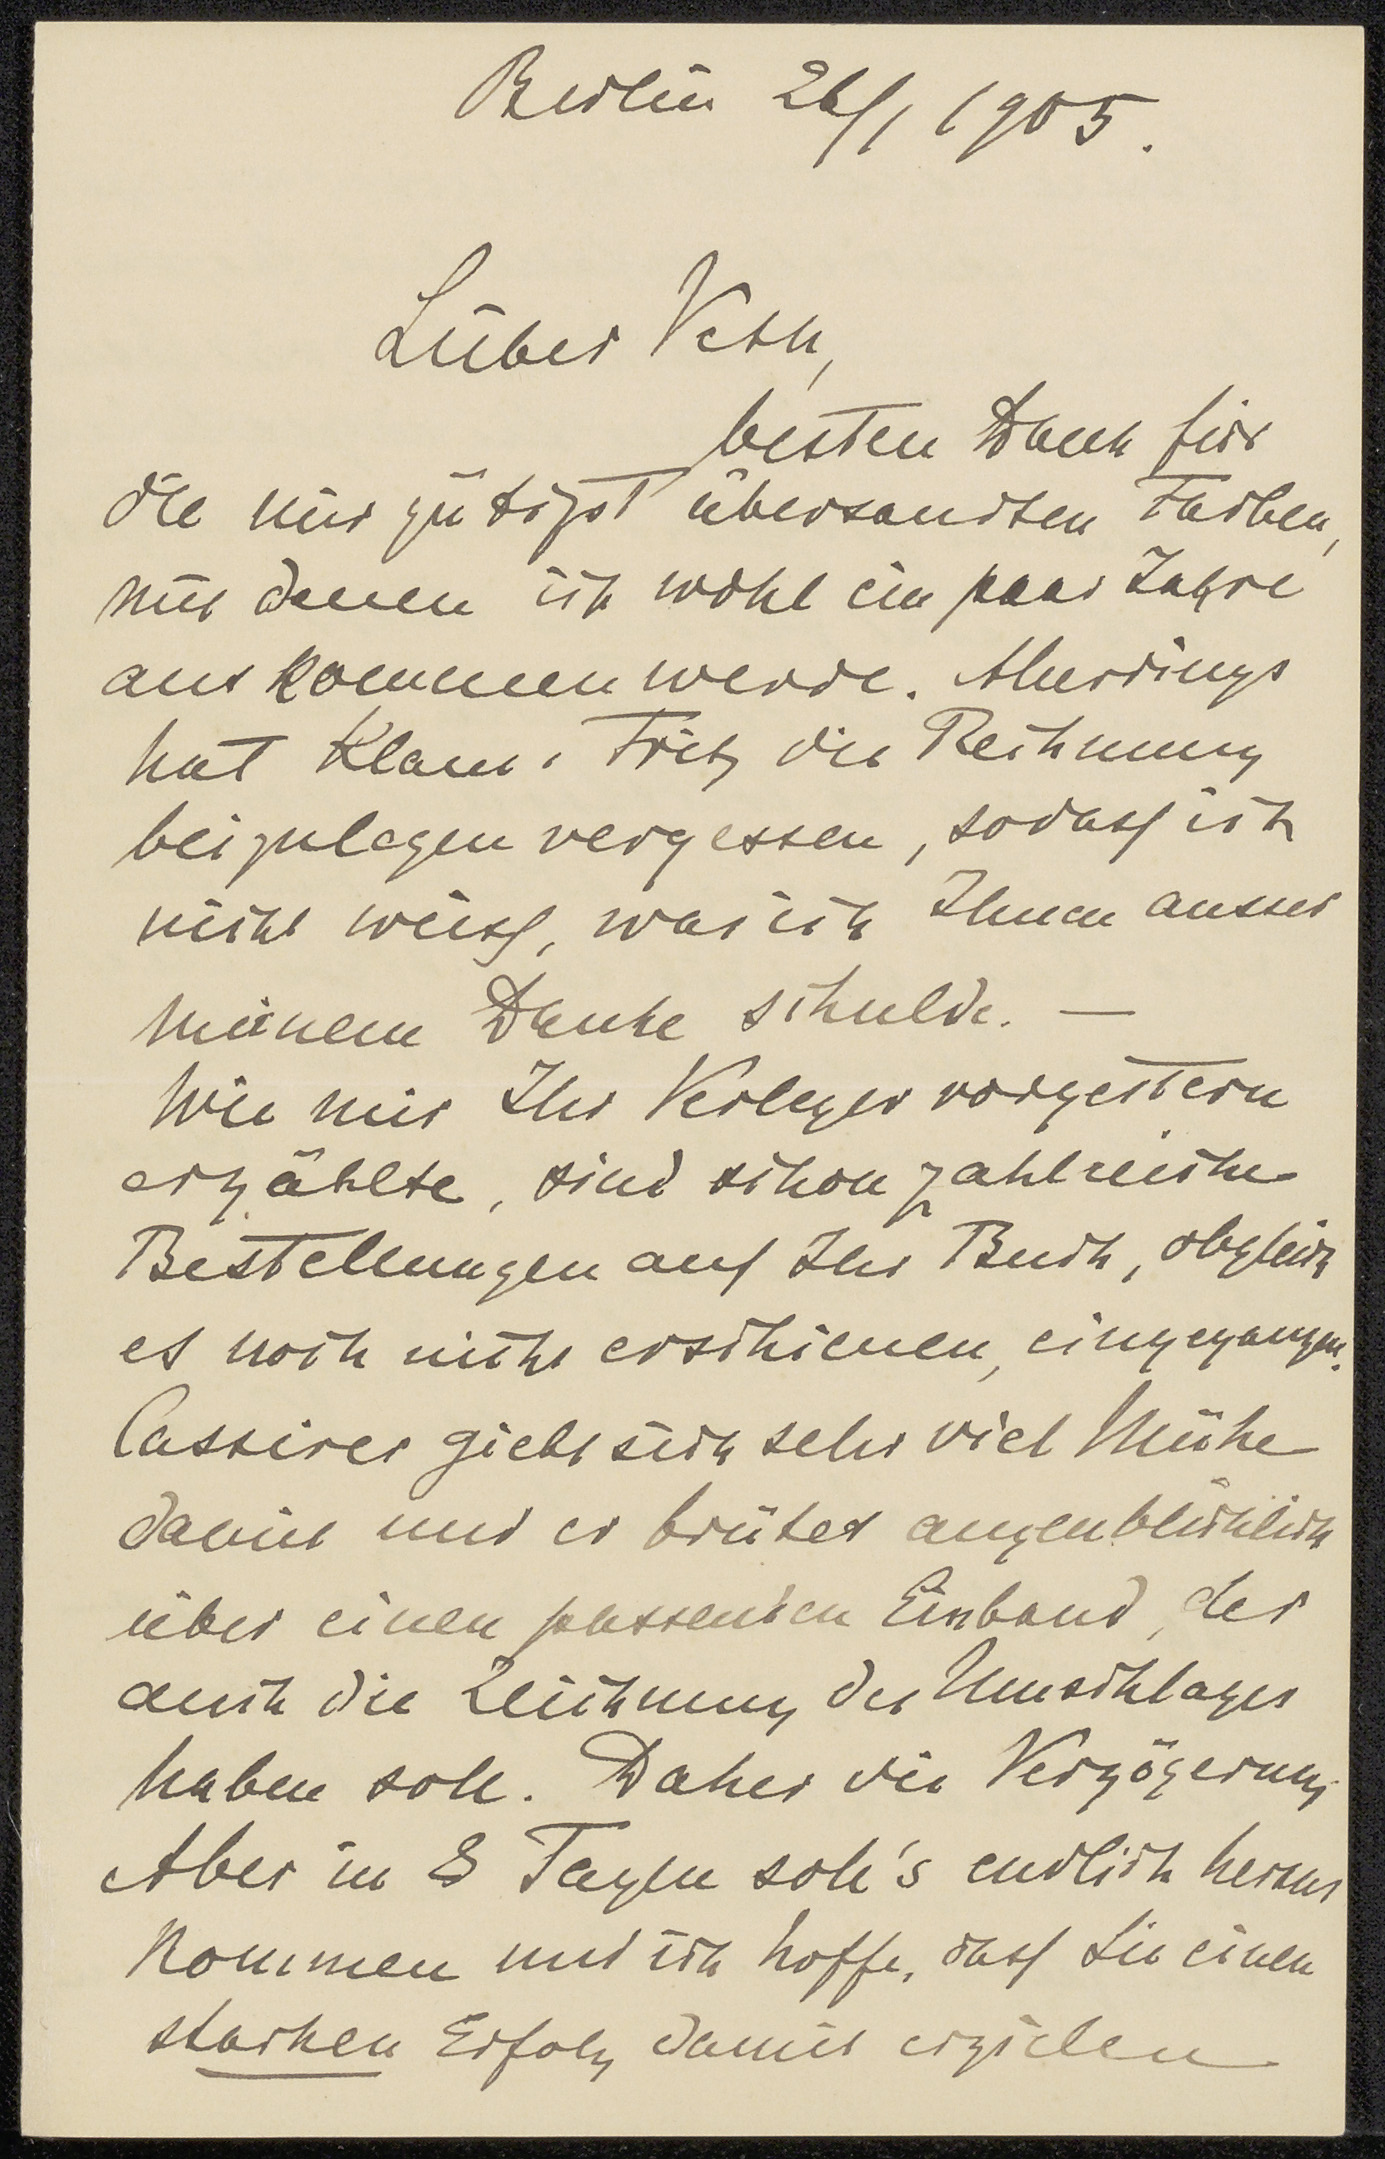 Berlin 26/1 1905.
Lieber Veth,
besten Dank für
die mir gütigst übersandten Farben,
mit denen ich wohl ein paar Jahre
auskommen werde. Allerdings
hat Klaus & Fritz die Rechnung
beizulegen vergessen, sodass ich
nicht weiss, was ich Ihnen ausser
meinem Danke schulde. —
Wie mir Ihr Verleger vorgestern
erzählte, sind schon zahlreiche
Bestellungen auf Ihr Buch, obgleich
es noch nicht erschienen, eingegangen.
Cassirer giebt sich sehr viel Mühe
damit und er brütet augenblicklich
über einen passenden Einband, der
auch die Zeichnung des Umschlages
haben soll. Daher die Verzögerung.
Aber in 8 Tagen soll's endlich heraus
kommen und ich hoffe, dass Sie einen
starken Erfolg damit erzielen